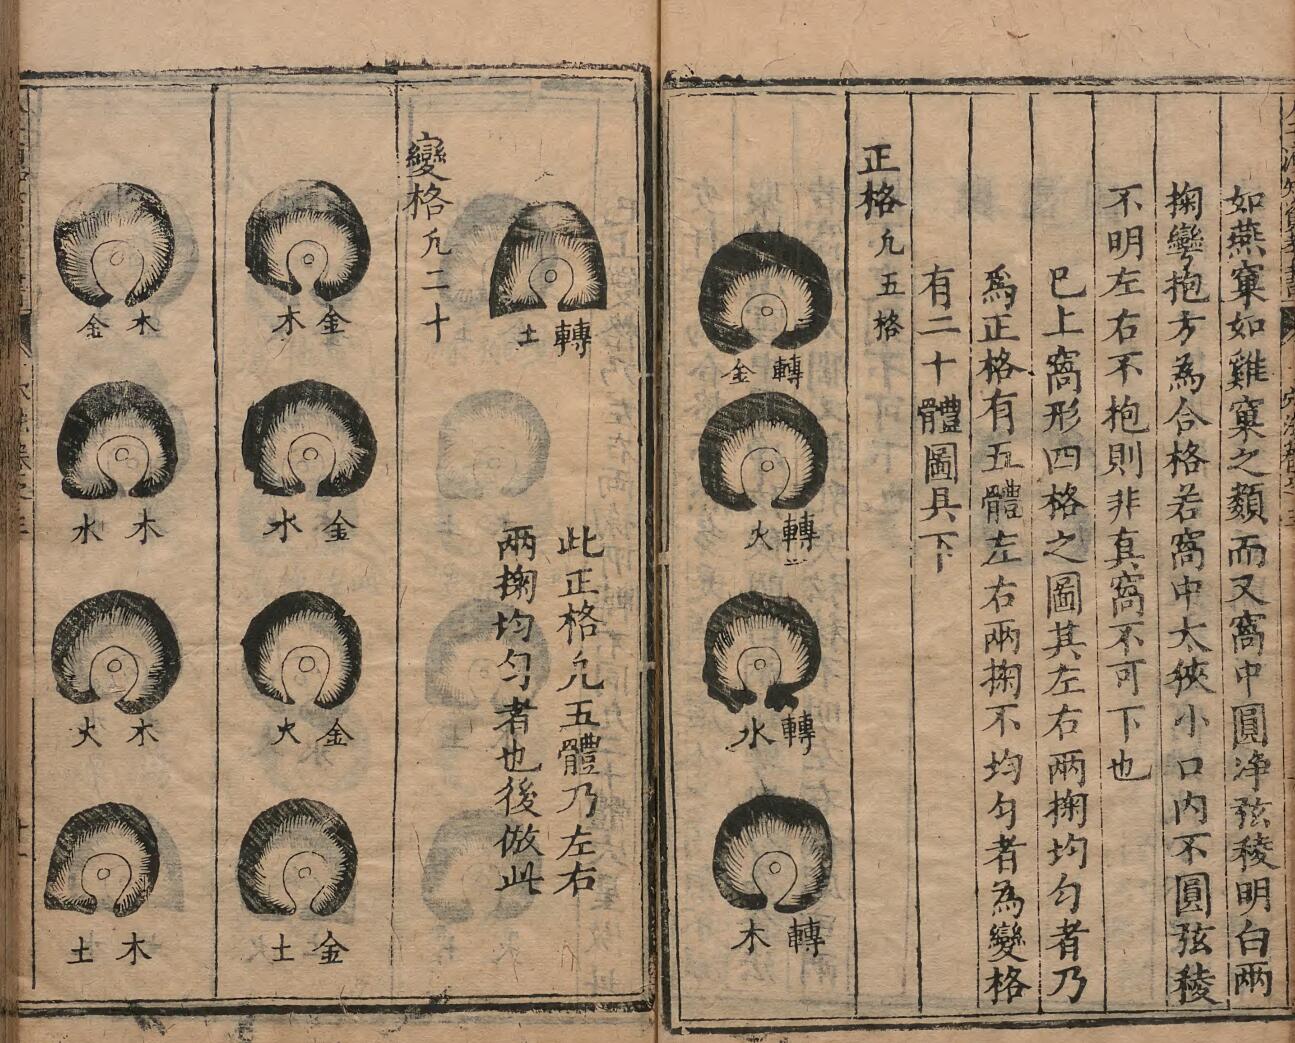 如燕窠如雞窠之類而又窩中圓淨弦稜明白兩
掬彎抱方為合格若窩中太狹小口內不圓弦稜
不明左右不抱則非真窩不可下也
巳上窩形四格之圖其左右兩掬均勻者乃
為正格有五體左右兩掬不均勻者為變格
有二十體圖具下
正格凢五格
轉金
轉火
轉水
轉木
轉土
此正格凢五體乃左右
兩掬均勻者也後倣此
變格凢二十
金木
金水
金火
金土
木金
木水
木火
木土